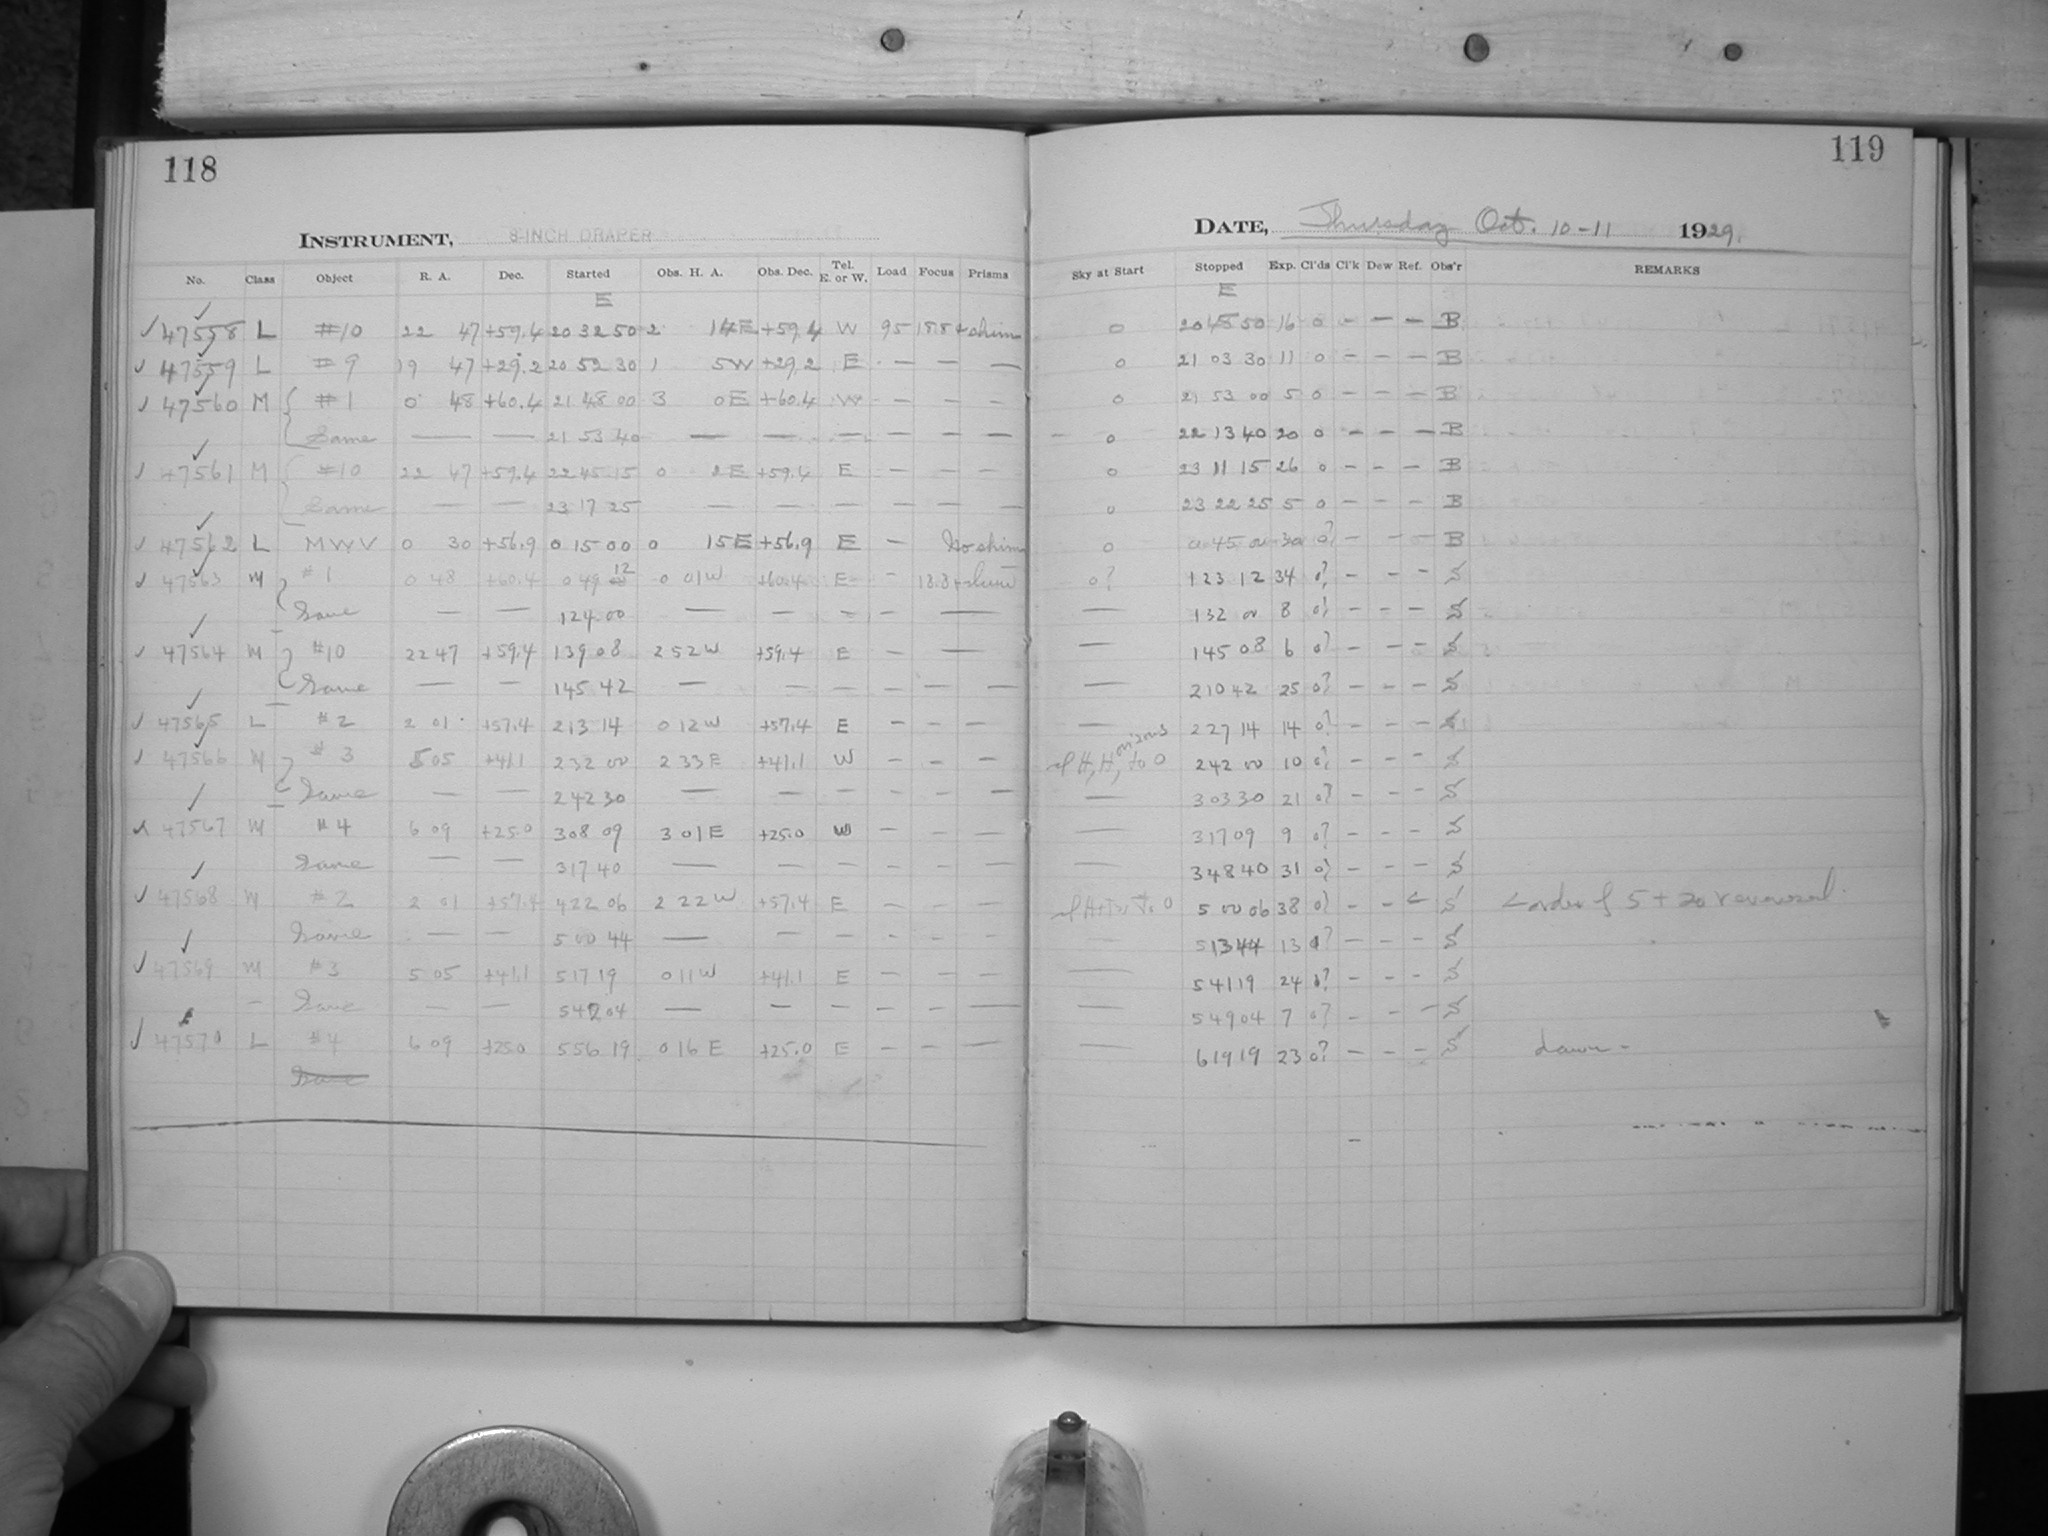 118
INSTRUMENT, 8-INCH DRAPER
No. Class Object R. A. Dec. Started Obs. H. A. Obs. Dec. Tel. E. or W. Load Focus Prisms
E
47558 L #10 22 47 +59.4 20 32 50 2 14E +59.4 W 95 18.8
47559 L #9 19 47 +29.2 20 52 30 1 5W +29.2 E — — —
47560 M #1 0 48 +60.4 21 48 00 3 0E +60.4 W — — —
Same — — 21 53 40 — — — — — —
47561 M #10 22 47 +59.4 22 45 15 0 2E +59.4 E — — —
Same — — 23 17 25 — — — — — —
47562 L MWV 0 30 +56.9 0 15 00 0 15E +56.9 E —
47563 M #1 0 48 +60.4 0 49 12 0 01W +60.4 E — 18.8
Same — — 1 24 00 — — — — — —
47564 M #10 22 47 +59.4 1 39 08 2 52W +59.4 E — — —
Same — — 1 45 42 — — — — — —
47565 L #2 2 01 +57.4 2 13 14 0 12W +57.4 E — — —
47566 M #3 5 05 +41.1 2 32 00 2 33E +41.1 W — — —
Same — — 2 42 30 — — — — — —
47567 M #4 6 09 +25.0 3 08 09 3 01E +25.0 W — — —
Same — — 3 17 40 — — — — — —
47568 M #2 2 01 +57.4 4 22 06 2 22W +57.4 E — — —
Same — — 5 00 44 — — — — — —
47569 M #3 5 05 +41.1 5 17 19 0 11W +41.1 E — — —
Same — — 5 42 04 — — — — — —
47570 L #4 6 09 +25.0 5 56 19 0 16E +25.0 E — — —
Same
119
DATE, Thursday Oct. 10-11 1929.
Sky at Start Stopped Exp. Cl'ds Cl'k Dew Ref. Obs'r REMARKS
E
0 20 48 50 16 0 — — — B
0 21 03 30 11 0 — — — B
0 21 53 00 5 0 — — — B
0 22 13 40 20 0 — — — B
0 23 11 15 26 0 — — — B
0 23 22 25 5 0 — — — B
0 0 45 00 30 0? — — — B
0? 1 23 12 34 0? — — — S
— 1 32 00 8 0? — — — S
— 1 45 08 6 0? — — — S
— 2 10 42 25 0? — — — S
— 2 27 14 14 0? — — — S
to 0 2 42 00 10 0? — — — S
— 3 03 30 21 0? — — — S
— 3 17 09 9 0? — — — S
— 3 48 40 31 0? — — — S
5 00 06 38 0? — — < S < order of 5 + 20 reversed.
— 5 13 44 13 0? — — — S
— 5 41 19 24 0? — — — S
— 5 49 04 7 0? — — — S
— 6 19 19 23 0? — — — S dawn -